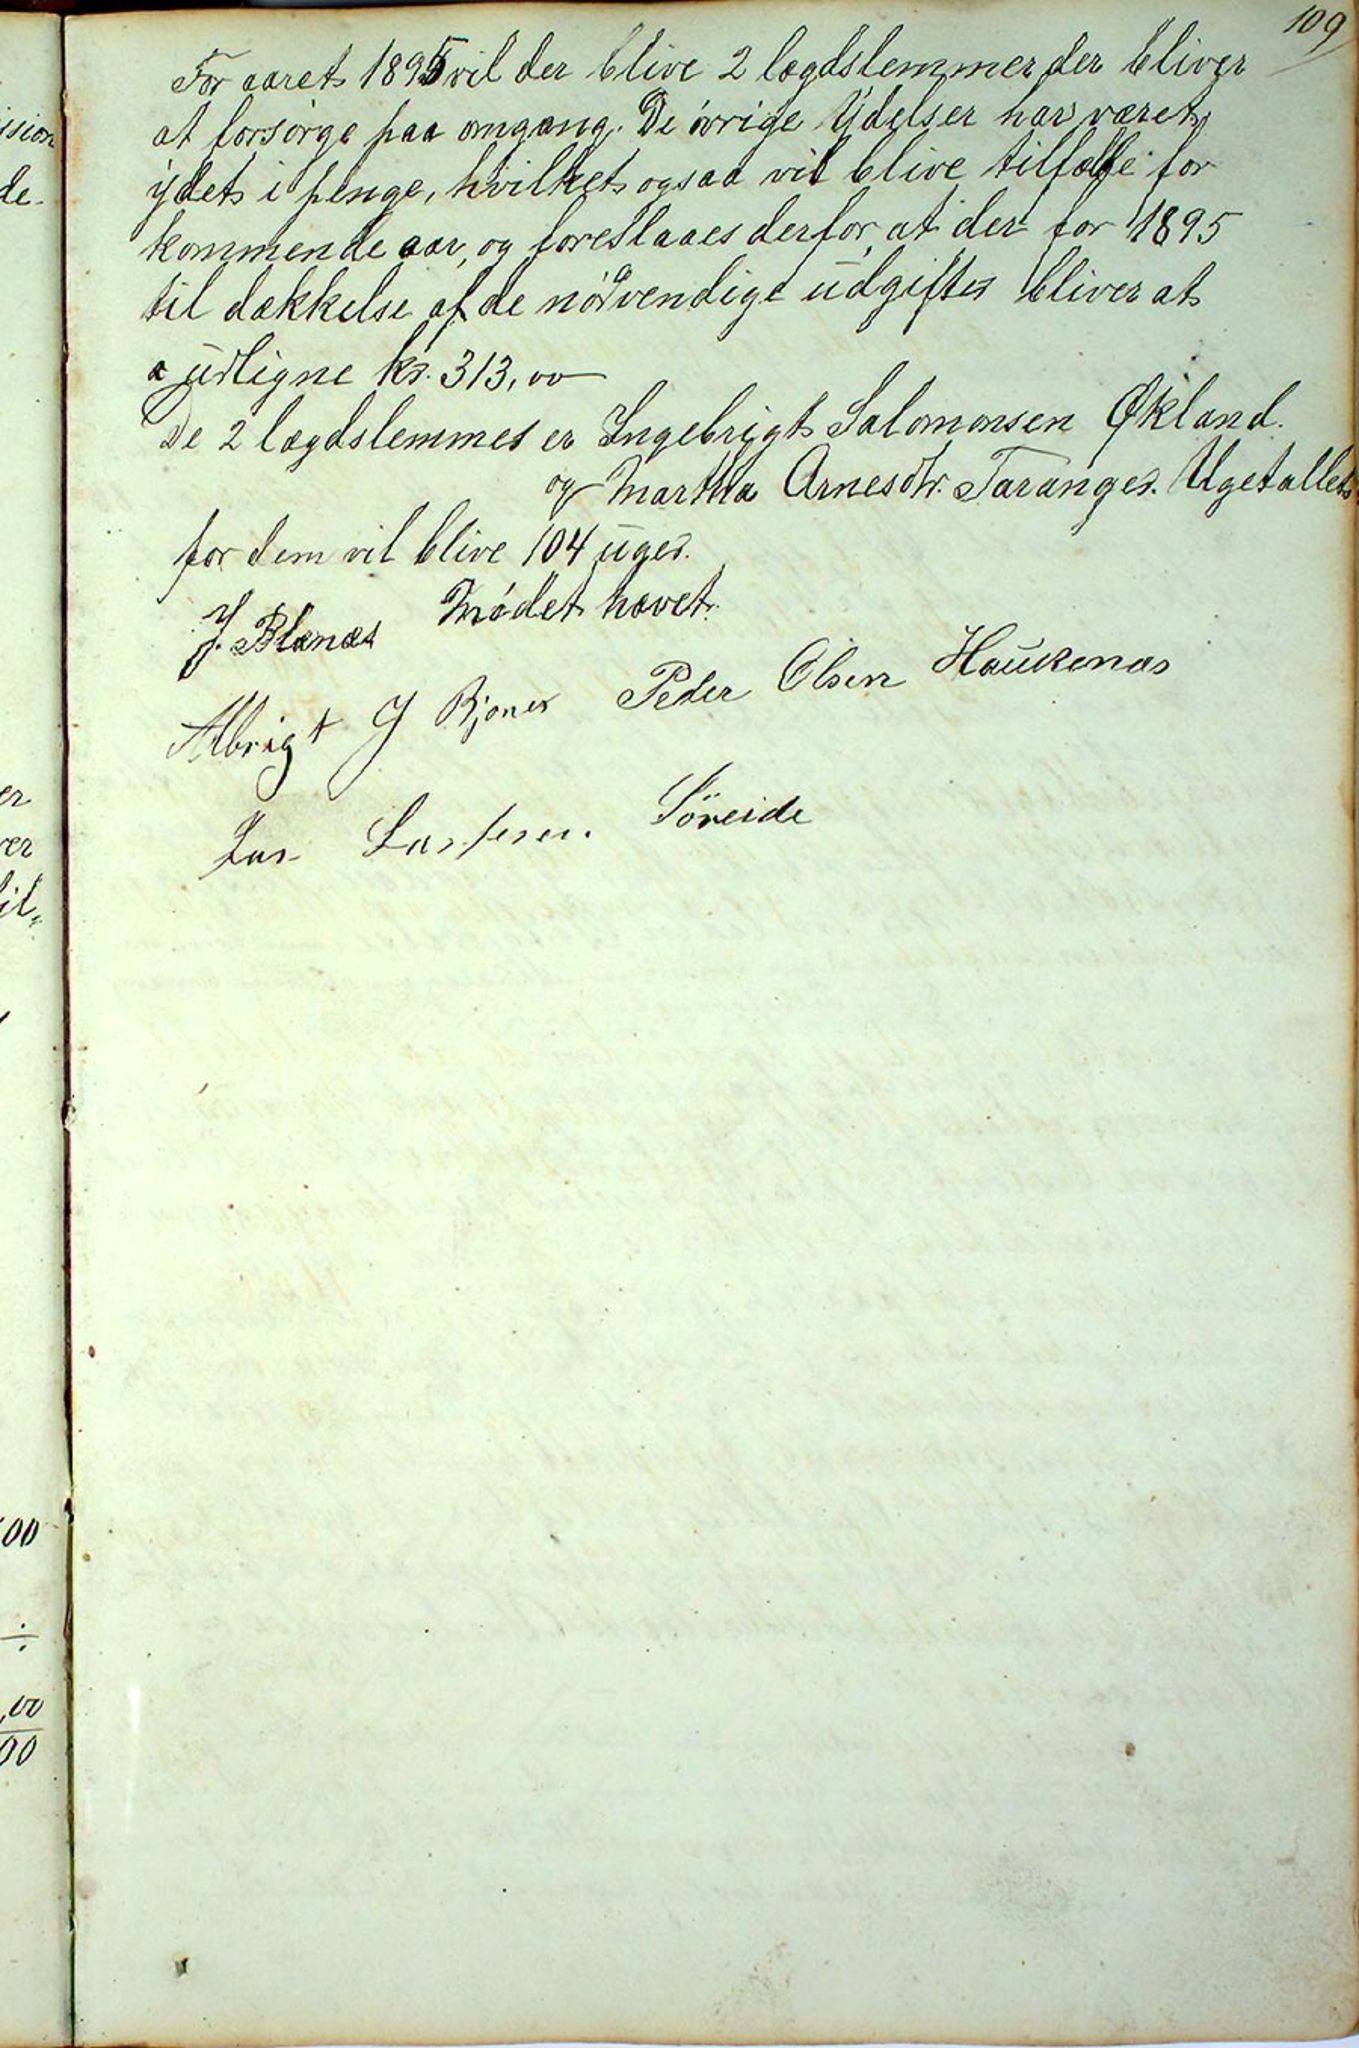 109
For aaret 1895 vil der blive 2 lægdslemmer der bliver
at forsørge paa omgang. De øvrige Ydelser har været
ydet i penge, hvilket ogsaa vil blive tilfælde for
kommende aar, og foreslaaes derfor, at der for 1895
til dækkelse af de nødvendige udgifter bliver at
udligne kr. 313,00
De 2 lægdslemmer er Ingebrigt Salomonsen Økland.
og Martha Arnesdtr. Taranger. Ugetallet
for dem vil blive 104 uger.
Mødet hævet.
J. Blænæs
Albrigt J Bjones Peder Olsen Haukenæs
Lars Larsen. Söreide
ssion
de.
er
ver
til,
00
÷
,00
00